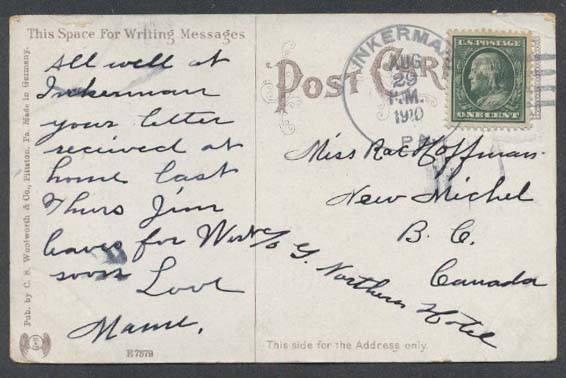 This Space For Writing Messages
All well at
Inkerman
your letter
recieved at
home last
Thurs Jim
leaves for West
soon Love
Mame.
Pub. by C. S. Woolworth & Co., Pittston, Pa. Made in Germany.
E7879
POST CARD
INKERMAN
AUG
29
P.M.
1910
PA
U.S. POSTAGE
ONE CENT
Miss Rae Hoffman
New Michel
B. C.
Canada
c/o G. Northern Hotel
This side for the Address only.